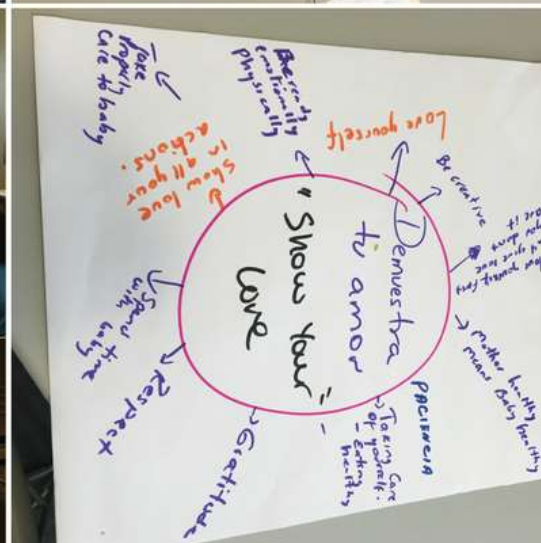 Demuestra
tu amor
"Show Your"
Love
Love yourself
Be creative
Mother healthy
means Baby healthy
PACIENCIA
Taking Care
of yourself.
- eating
healthy
Gratitude
Respect
Spend time
with baby
Show love
in all your
actions.
Be ready
emotionally
physically
Take
properly
care to baby